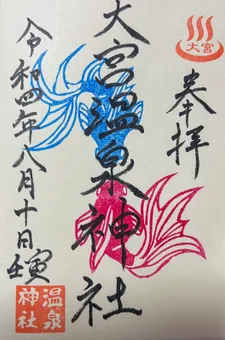 大宮
奉拝
大宮温泉神社
令和四年八月十日寅
温泉
神社